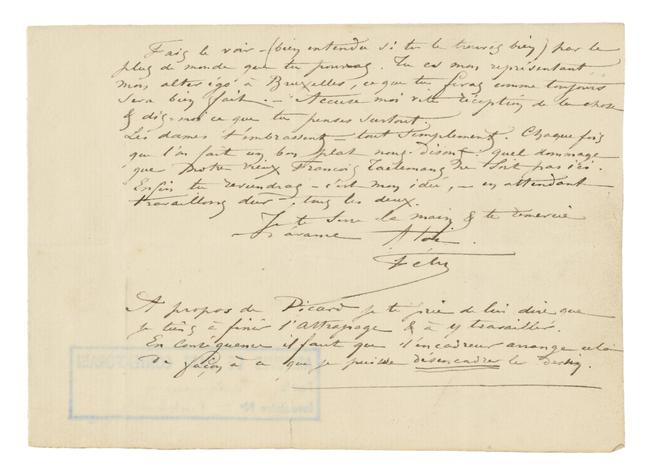 Fais le voir – (bien entendu si tu le trouves bien) par le
plus de monde que tu pourras. Tu es mon représentant
mon alter égo à Bruxelles, ce que tu feras comme toujours
sera bien fait. – Accuse moi vite réception de la chose
& dis-moi ce que tu penses surtout.
Les dames t'embrassent – tout simplement. Chaque fois
que l'on fait un bon plat nous disons quel dommage
que notre vieux François Taelemans ne soit pas ici.
Enfin tu reviendras – c'est mon idée, – en attendant
travaillons dur – tous les deux.
Je te serre la main & te remercie
d'avance A toi
Fély
A propos de Picard je te prie de lui dire que
je tiens à finir l'Attrapage & à y travailler.
En conséquence il faut que l'encadreur arrange cela
de façon à ce que je puisse désencadrer le dessin.